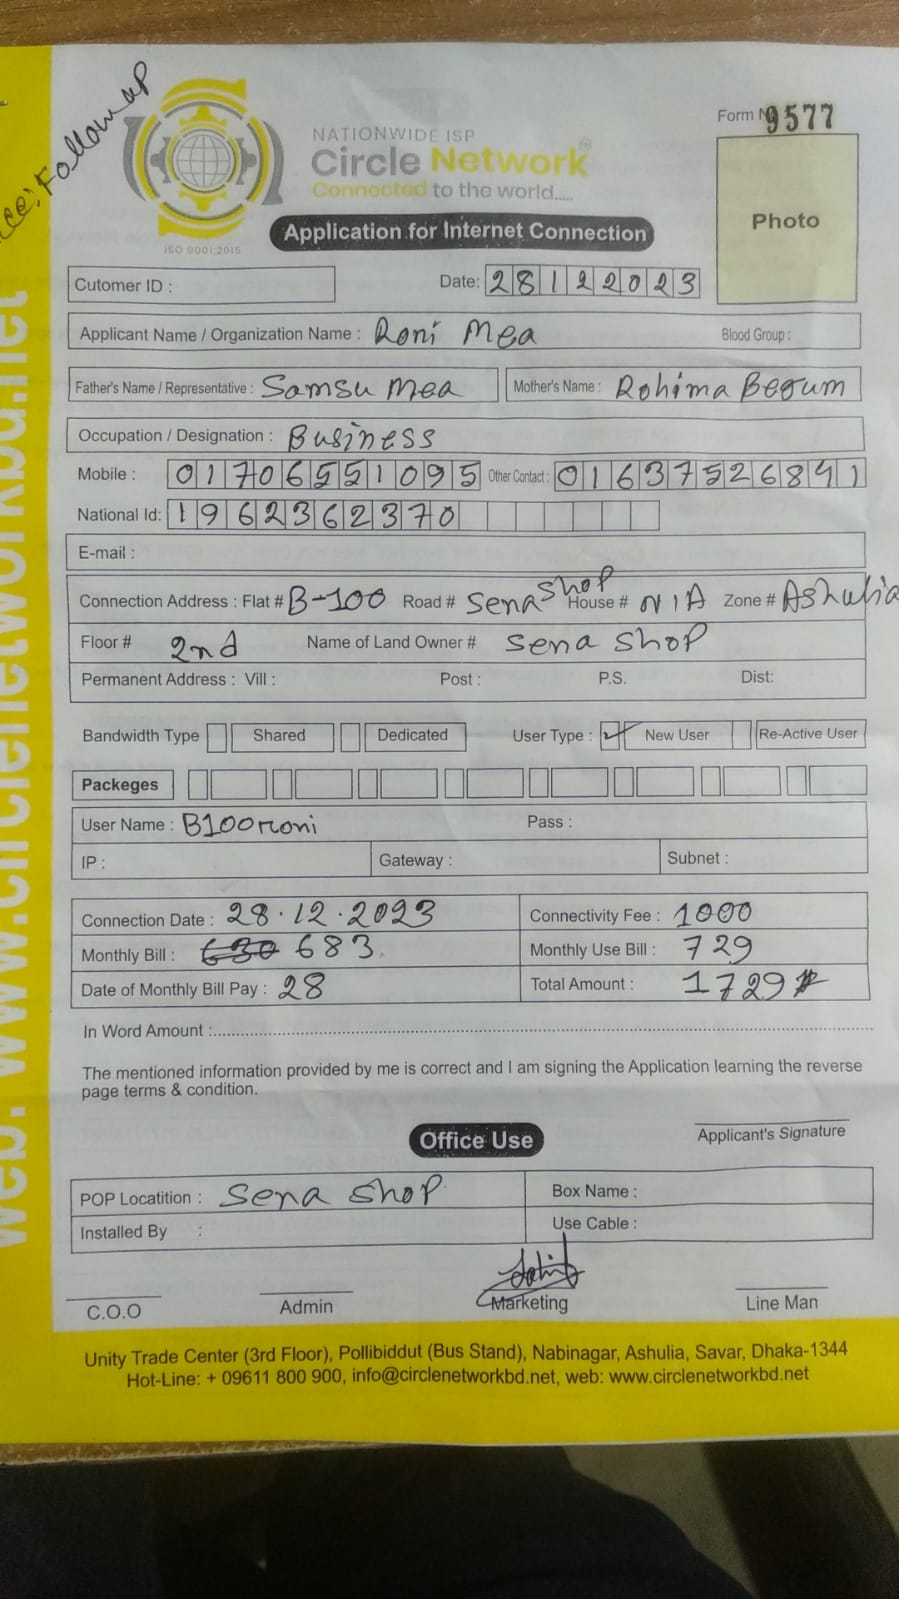 Follow up
NATIONWIDE ISP
Circle Network
Connected to the world.....
ISO 9001:2015
Form N 9577
Photo
Application for Internet Connection
Cutomer ID :
Date: 28122023
Applicant Name / Organization Name : Roni Mea Blood Group :
Father's Name / Representative : Samsu Mea Mother's Name : Rohima Begum
Occupation / Designation : Business
Mobile : 01706551095 Other Contact : 01637526841
National Id: 1962362370
E-mail :
Connection Address : Flat # B-100 Road # Sena Shop House # N/A Zone # Ashulia
Floor # 2nd Name of Land Owner # Sena Shop
Permanent Address : Vill : Post : P.S. Dist:
Bandwidth Type Shared Dedicated User Type : ✓ New User Re-Active User
Packeges
User Name : B100roni Pass :
IP : Gateway : Subnet :
Connection Date : 28.12.2023 Connectivity Fee : 1000
Monthly Bill : 630 683 Monthly Use Bill : 729
Date of Monthly Bill Pay : 28 Total Amount : 1729
In Word Amount :
The mentioned information provided by me is correct and I am signing the Application learning the reverse
page terms & condition.
Applicant's Signature
Office Use
POP Locatition : Sena Shop Box Name :
Installed By : Use Cable :
C.O.O Admin Marketing Line Man
Unity Trade Center (3rd Floor), Pollibiddut (Bus Stand), Nabinagar, Ashulia, Savar, Dhaka-1344
Hot-Line: + 09611 800 900, info@circlenetworkbd.net, web: www.circlenetworkbd.net
web: www.circlenetworkbd.net